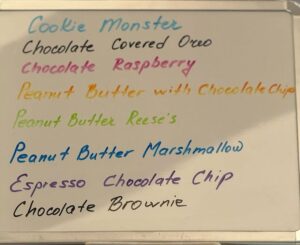 Cookie Monster
Chocolate Covered Oreo
Chocolate Raspberry
Peanut Butter with Chocolate Chips
Peanut Butter Reese's
Peanut Butter Marshmallow
Espresso Chocolate Chip
Chocolate Brownie